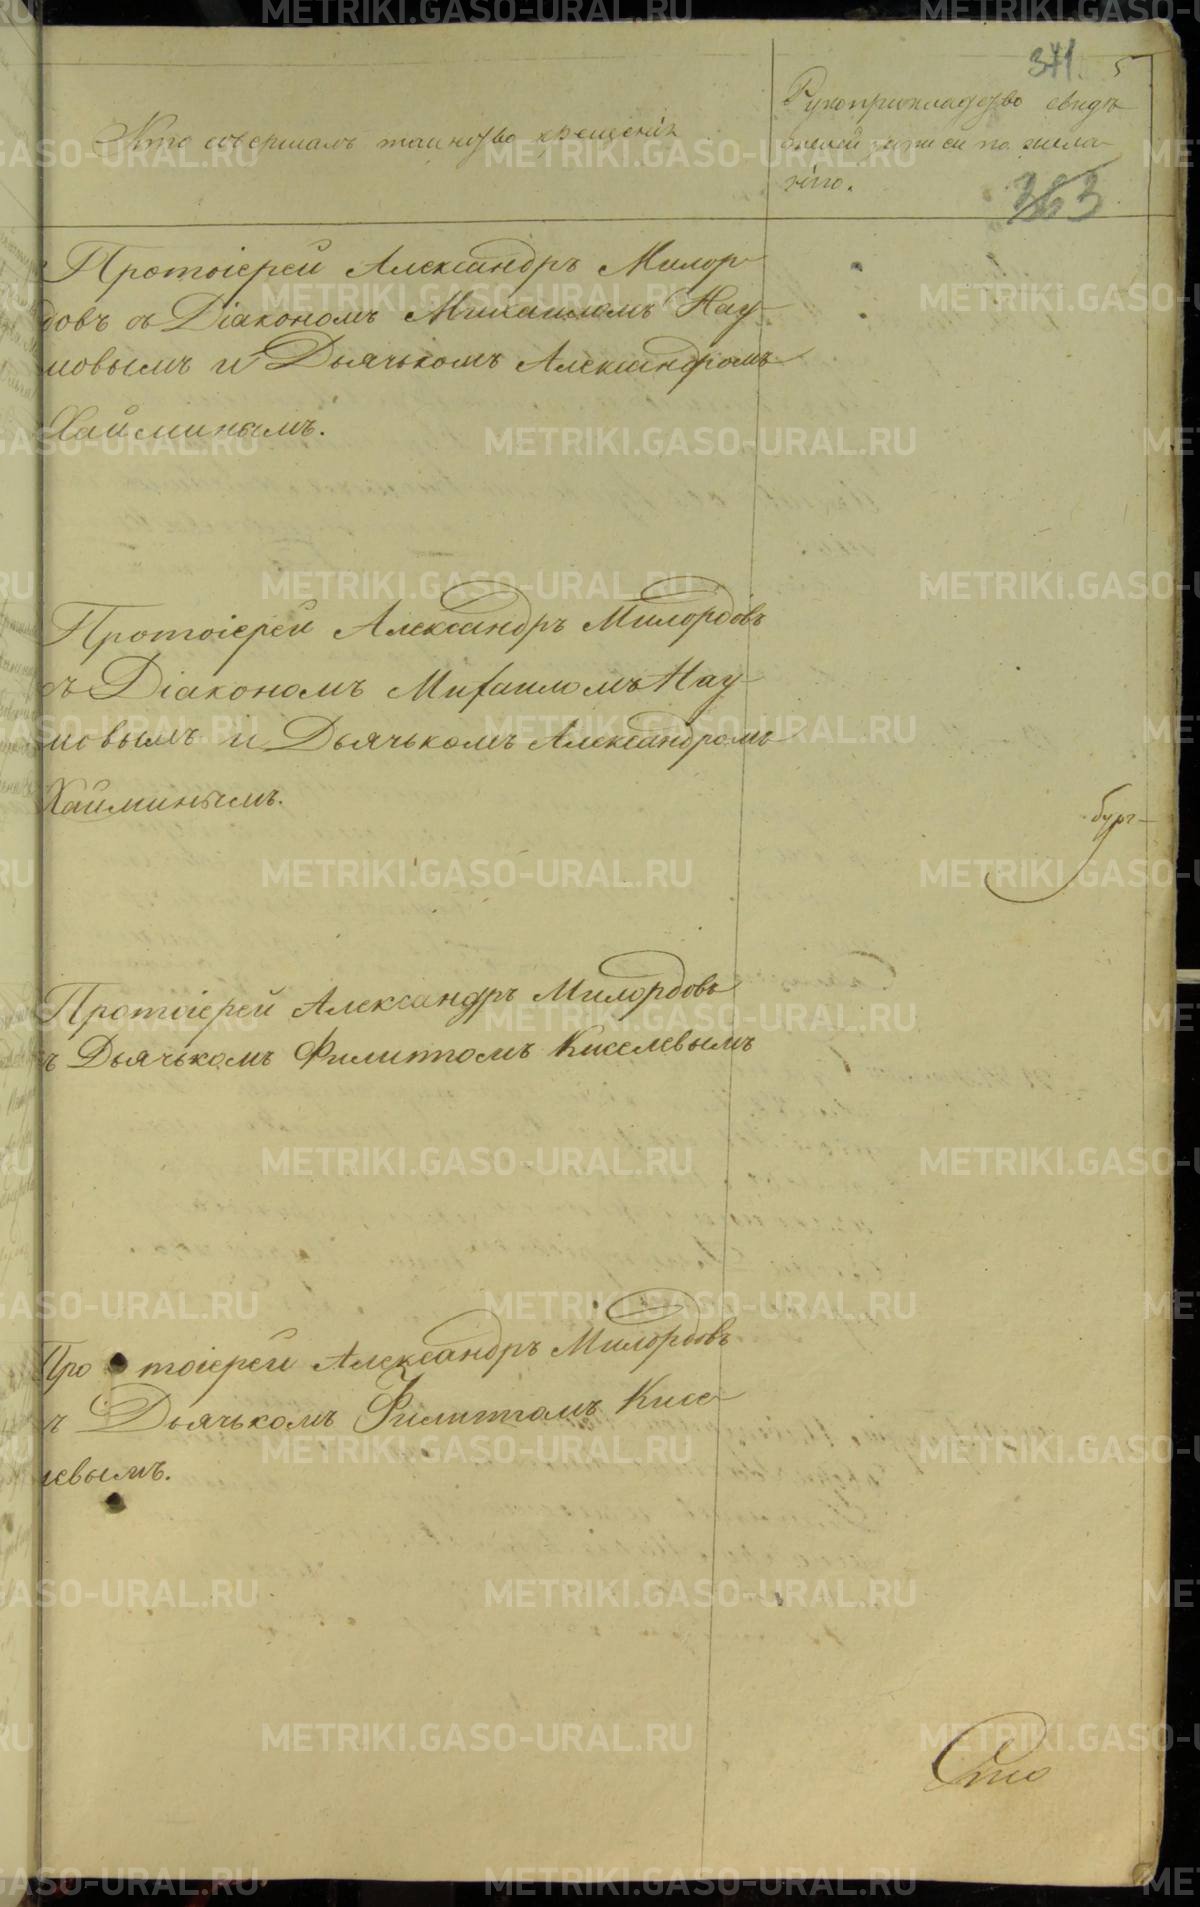 341. 5
Кто совершалъ таинство крещенія
Рукоприкладство свидѣ-
телей записи по жела-
нію.
383
Протоіерей Александръ Милор-
довъ съ Діакономъ Михаиломъ Нау-
мовымъ и Дьячькомъ Александромъ
Хайминымъ.
Протоіерей Александръ Милордовъ
съ Діакономъ Михаиломъ Нау-
мовымъ и Дьячькомъ Александромъ
Хайминымъ.
бург-
Протоіерей Александръ Милордовъ
ъ Дьячькомъ Филиппомъ Киселевымъ
Протоіерей Александръ Милордовъ
ъ Дьячькомъ Филиппомъ Кисе-
левымъ.
METRIKI.GASO-URAL.RU